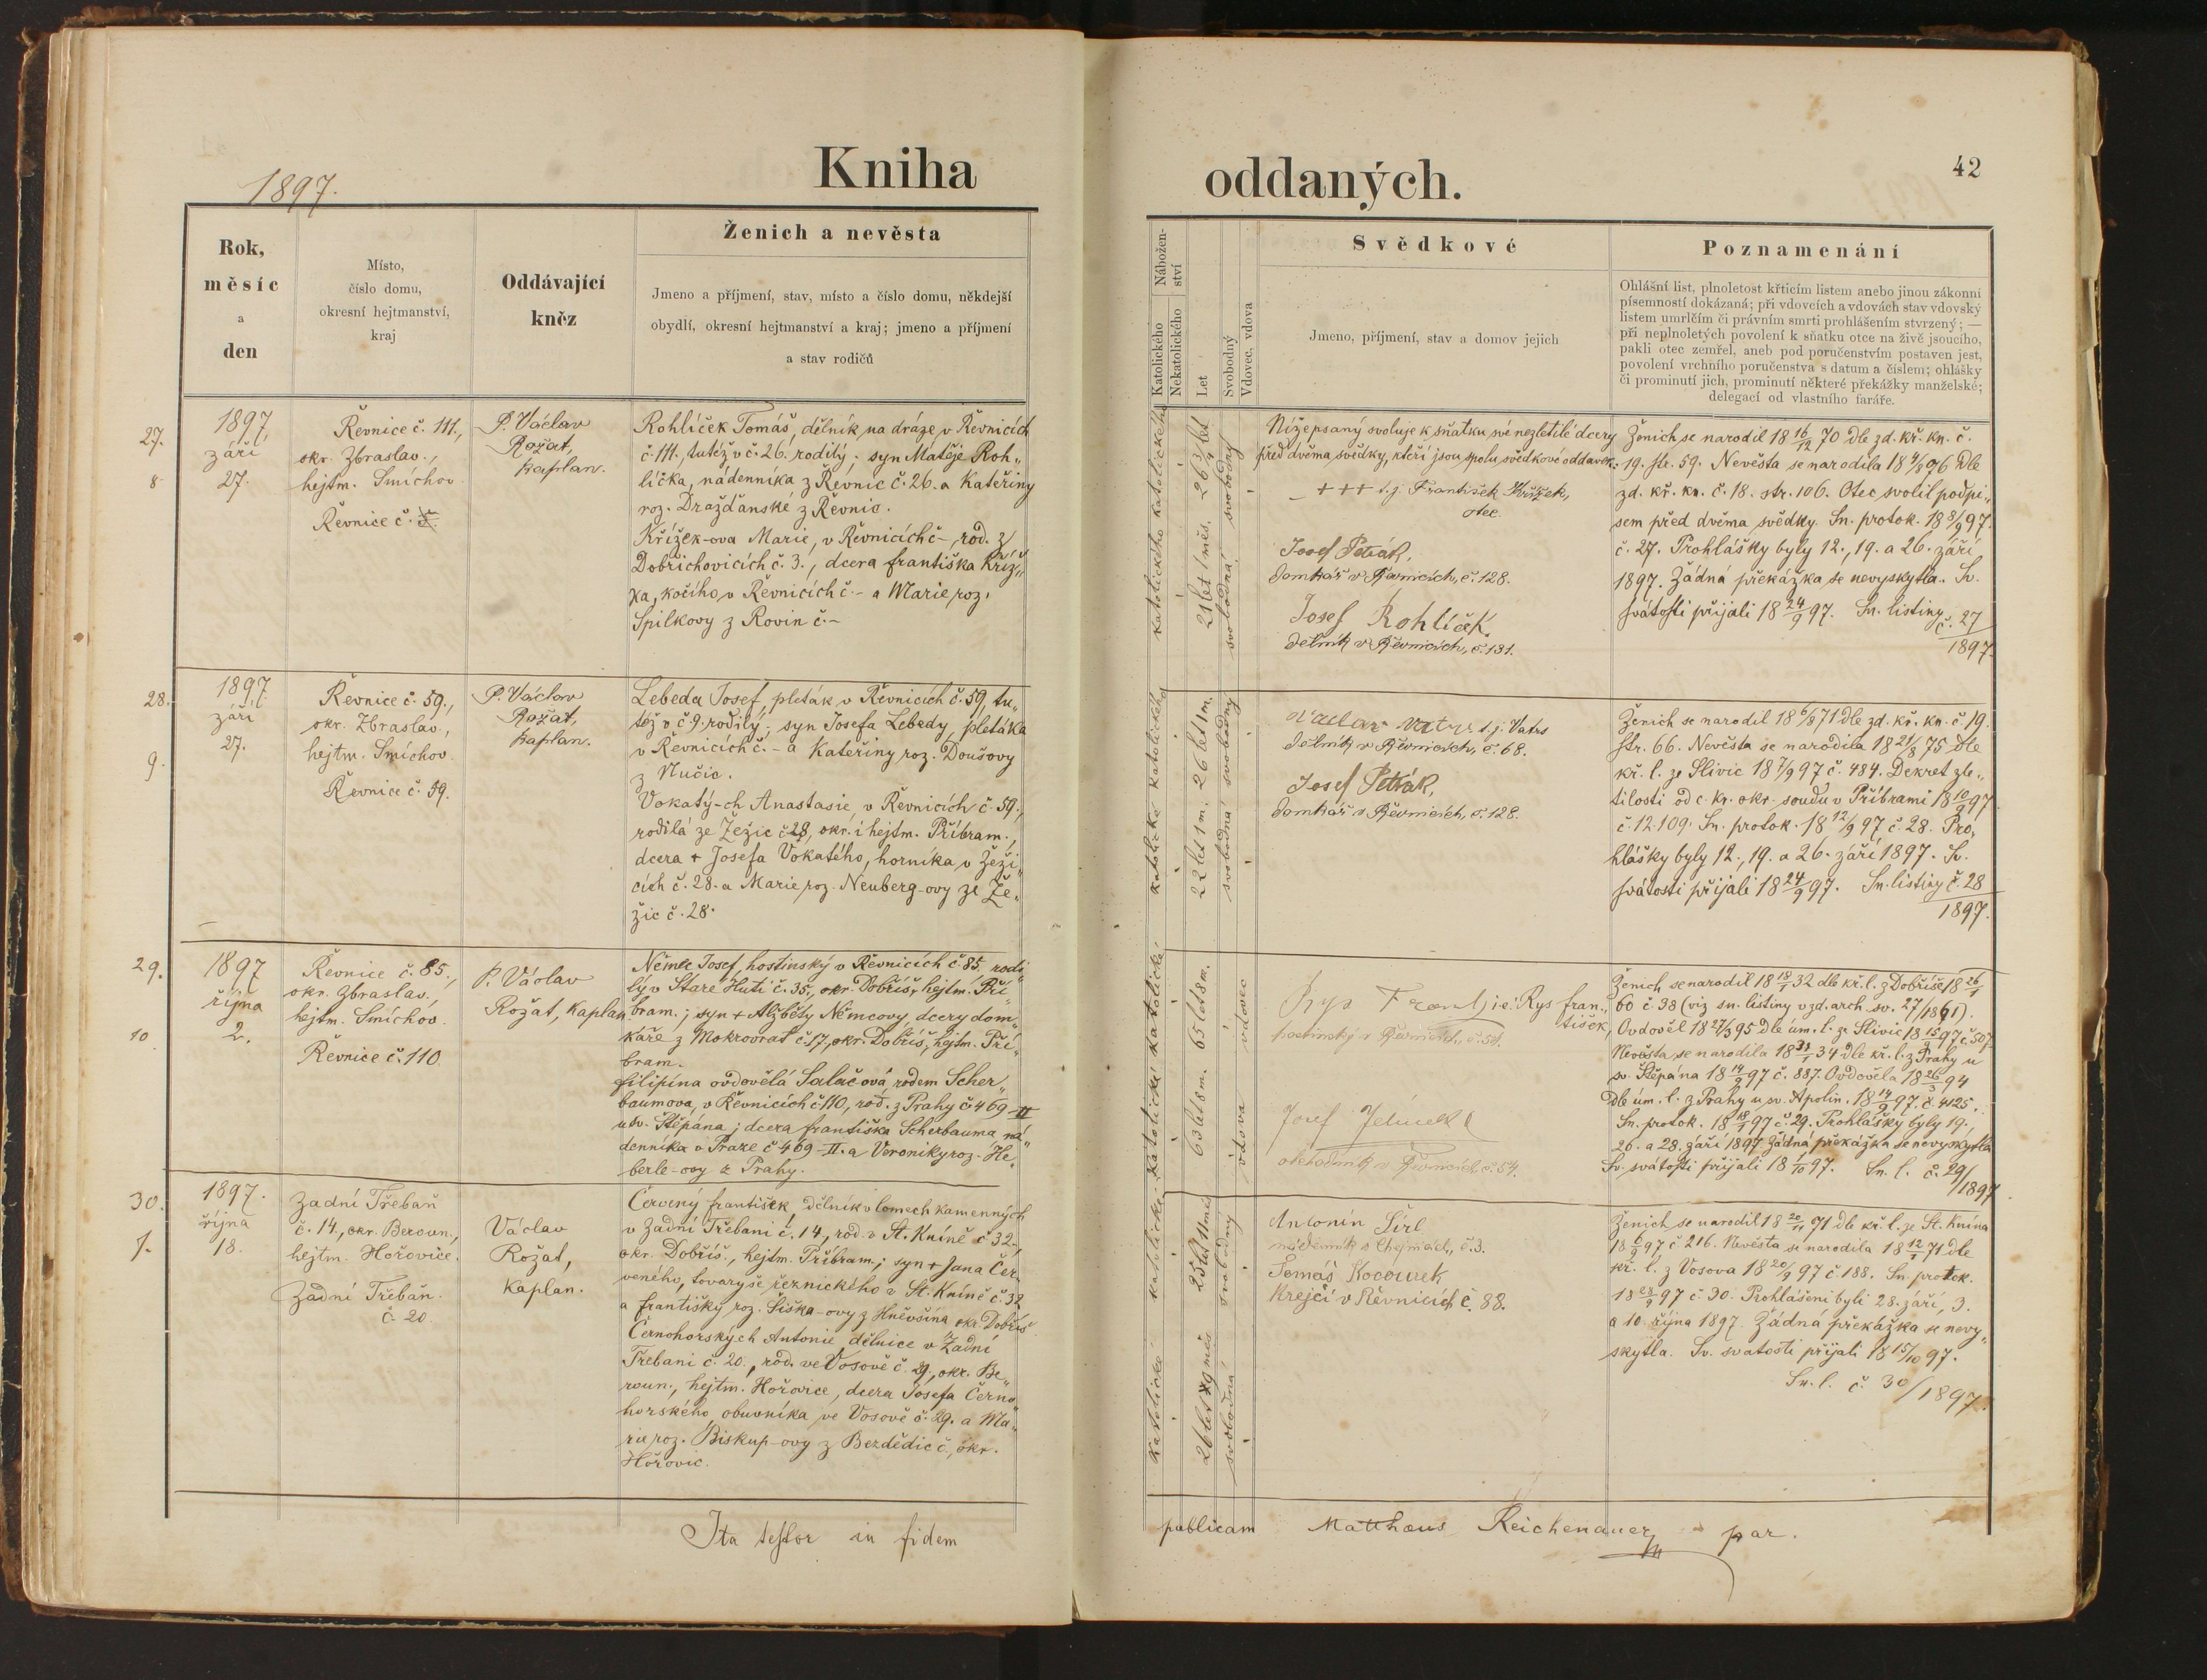 Kniha
oddaných.
42
1897.
Rok,
měsíc
a
den
Místo,
číslo domu,
okresní hejtmanství,
kraj
Oddávající
kněz
Ženich a nevěsta
Jmeno a příjmení, stav, místo a číslo domu, někdejší
obydlí, okresní hejtmanství a kraj; jmeno a příjmení
a stav rodičů
Nábožen-
ství
Katolického
Nekatolického
Let
Svobodný
Vdovec, vdova
Svědkové
Jmeno, příjmení, stav a domov jejich
Poznamenání
Ohlášní list, plnoletost křticím listem anebo jinou zákonní
písemností dokázaná; při vdovcích a vdovách stav vdovský
listem umrlčím či právním smrti prohlášením stvrzený; —
při neplnoletých povolení k sňatku otce na živě jsoucího,
pakli otec zemřel, aneb pod poručenstvím postaven jest,
povolení vrchního poručenstva s datum a číslem; ohlášky
či prominutí jich, prominutí některé překážky manželské;
delegací od vlastního faráře.
27.
8.
1897
září
27.
Řevnice č. 111.,
okr. Zbraslav.,
hejtm. Smíchov
Řevnice č.
P. Václav
Rožat,
kaplan.
Rohlíček Tomáš, dělník na dráze v Řevnicích
č. 111., tutéž v č. 26. rodilý; syn Matěje Roh„
líčka, nádenníka z Řevnic č. 26. a Kateřiny
roz. Dražďanské z Řevnic.
Křížek-ova Marie, v Řevnicích č -, rod. z
Dobřichovicích č. 3., dcera františka Kříž„
ka, kočího v Řevnicích č. - a Marie roz.
Spilkovy z Rovin č. -
katolického katolického
21 let 1 měs. 26 3/4 let
svobodná svobodný
Nížepsaný svoluje k sňatku své nezletilé dcery
před dvěma svědky, kteří jsou spolu svědkové oddavek:
+++ t.j. František Křížek,
otec.
Josef Petrák,
domkář v Řevnicích, č. 128.
Josef Rohlíček
dělník v Řevnicích, č. 131.
Ženich se narodil 18 16/12 70 dle zd. kř. kn. č.
19. str. 59. Nevěsta se narodila 18 4/8 76 dle
zd. kř. kn. č. 18. str. 106. Otec svolil podpi„
sem před dvěma svědky. Sn. protok. 18 8/9 97.
č. 27. Prohlášky byly 12., 19. a 26. září
1897. Žádná překážka se nevyskytla. Sv.
svátosti přijali 18 24/9 97. Sn. listiny č. 27
1897.
28.
9.
1897
září
27.
Řevnice č. 59.,
okr. Zbraslav.,
hejtm. Smíchov
Řevnice č. 59.
P. Václav
Rožat,
kaplan.
Lebeda Josef, pleták v Řevnicích č. 59, tu„
též v č. 9. rodilý; syn Josefa Lebedy, pletáka
v Řevnicích č. - a Kateřiny roz. Doušovy
z Nučic.
Vokatý-ch Anastasie, v Řevnicích č. 59.,
rodilá ze Žežic č 28, okr. i hejtm. Příbram.,
dcera + Josefa Vokatého, horníka v Žeži„
cích č. 28. a Marie roz. Neuberg-ovy ze Že„
žic č. 28.
katolické katolického
22 let 1 m. 26 let 1 m.
svobodná svobodný
t.j. Vatrs
dělník v Řevnicích, č. 68.
Josef Petrák,
domkář v Řevnicích, č. 128.
Ženich se narodil 18 6/8 71 dle zd. kř. kn. č. 19.
str. 66. Nevěsta se narodila 18 21/8 75 dle
kř. l. ze Slivic 18 7/9 97 č. 484. Dekret zle„
tilosti od c. kr. okr. soudu v Příbrami 18 10/9 97
č. 12.109. Sn. protok. 18 12/9 97 č. 28. Pro„
hlášky byly 12., 19. a 26. září 1897. Sv.
svátosti přijali 18 24/9 97. Sn. listiny č. 28
1897.
29.
10
1897
října
2.
Řevnice č. 85.,
okr. Zbraslav.,
hejtm. Smíchov.
Řevnice č. 110.
P. Václav
Rožat, kaplan
Němec Josef, hostinský v Řevnicích č. 85, rodi„
lý v Staré Huti č. 35., okr. Dobříš, hejtm. Pří„
bram.; syn + Alžběty Němcovy, dcery dom„
káře z Mokrovrat č. 17, okr. Dobříš, hejtm. Pří„
bram.
filipína ovdovělá Salačová, rodem Scher„
baumova, v Řevnicích č 110, rod. z Prahy č 469-II
u sv. Štěpána; dcera františka Scherbauma, ná„
denníka v Praze č 469-II. a Veroniky roz. He„
berle-ovy z Prahy.
katolické katolické
63 let 8 m. 65 let 8 m.
vdova vdovec
Rys Frant. j.e. Rys fran„
tišek,
hostinský v Řevnicích, č. 54.
Josef Jelínek
obchodník v Řevnicích č. 54.
Ženich se narodil 18 18/1 32 dle kř. l. z Dobříše 18 26/1
60 č. 38 (viz sn. listiny v zd. arch. sv. 27/1861).
Ovdověl 18 27/3 95 dle úm. l. ze Slivic 18 15/9 97 č. 507.
Nevěsta se narodila 18 31/1 34 dle kř. l. z Prahy u
sv. Štěpána 18 14/9 97 č. 887. Ovdověla 18 26/3 94
dle úm. l. z Prahy u sv. Apolin. 18 14/9 97. č. 4125.
Sn. protok. 18 18/9 97 č. 29. Prohlášky byly 19.,
26. a 28. září 1897. Žádná překážka se nevyskytla
Sv. svátosti přijali 18 1/10 97. Sn. l. č. 29/
1897
30.
7.
1897.
října
18.
Zadní Třebaň
č. 14, okr. Beroun.,
hejtm. Hořovice.
Zadní Třebaň.
č. 20.
Václav
Rožat,
kaplan.
Červený františek, dělník v lomech kamenných
v Zadní Třebani č. 14, rod. v St. Kníně č 32.,
okr. Dobříš., hejtm. Příbram.; syn + Jana Čer„
veného, tovaryše řeznického v St. Kníně č. 32
a františky roz. Šiška-ovy z Hněvšína okr. Dobříš.
Černohorských Antonie, dělnice v Zadní
Třebani č. 20., rod. ve Vosově č. 29, okr. Be„
roun., hejtm. Hořovice, dcera Josefa Černo„
horského, obuvníka ve Vosově č. 29. a Ma„
rie roz. Biskup-ovy z Bezdědic č., okr.
Hořovic.
katolické katolické
26 let 9 měs 25 let 11 měs
svobodná svobodný
Antonín Širl
nádenník v Chejnicích, č. 3.
Tomáš Kocourek
Krejčí v Řevnicích č. 88.
Ženich se narodil 18 20/11 71 dle kř. l. ze St. Knína
18 6/9 97 č 216. Nevěsta se narodila 18 12/1 71 dle
kř. l. z Vosova 18 20/9 97 č. 188. Sn. protok.
18 28/9 97 č. 30. Prohlášeni byli 28. září, 3.
a 10. října 1897. Žádná překážka se nevy„
skytla. Sv. svatosti přijali 18 15/10 97.
Sn. l. č. 30/1897.
Ita testor in fidem publicam Matthaeus Reichenauer par.